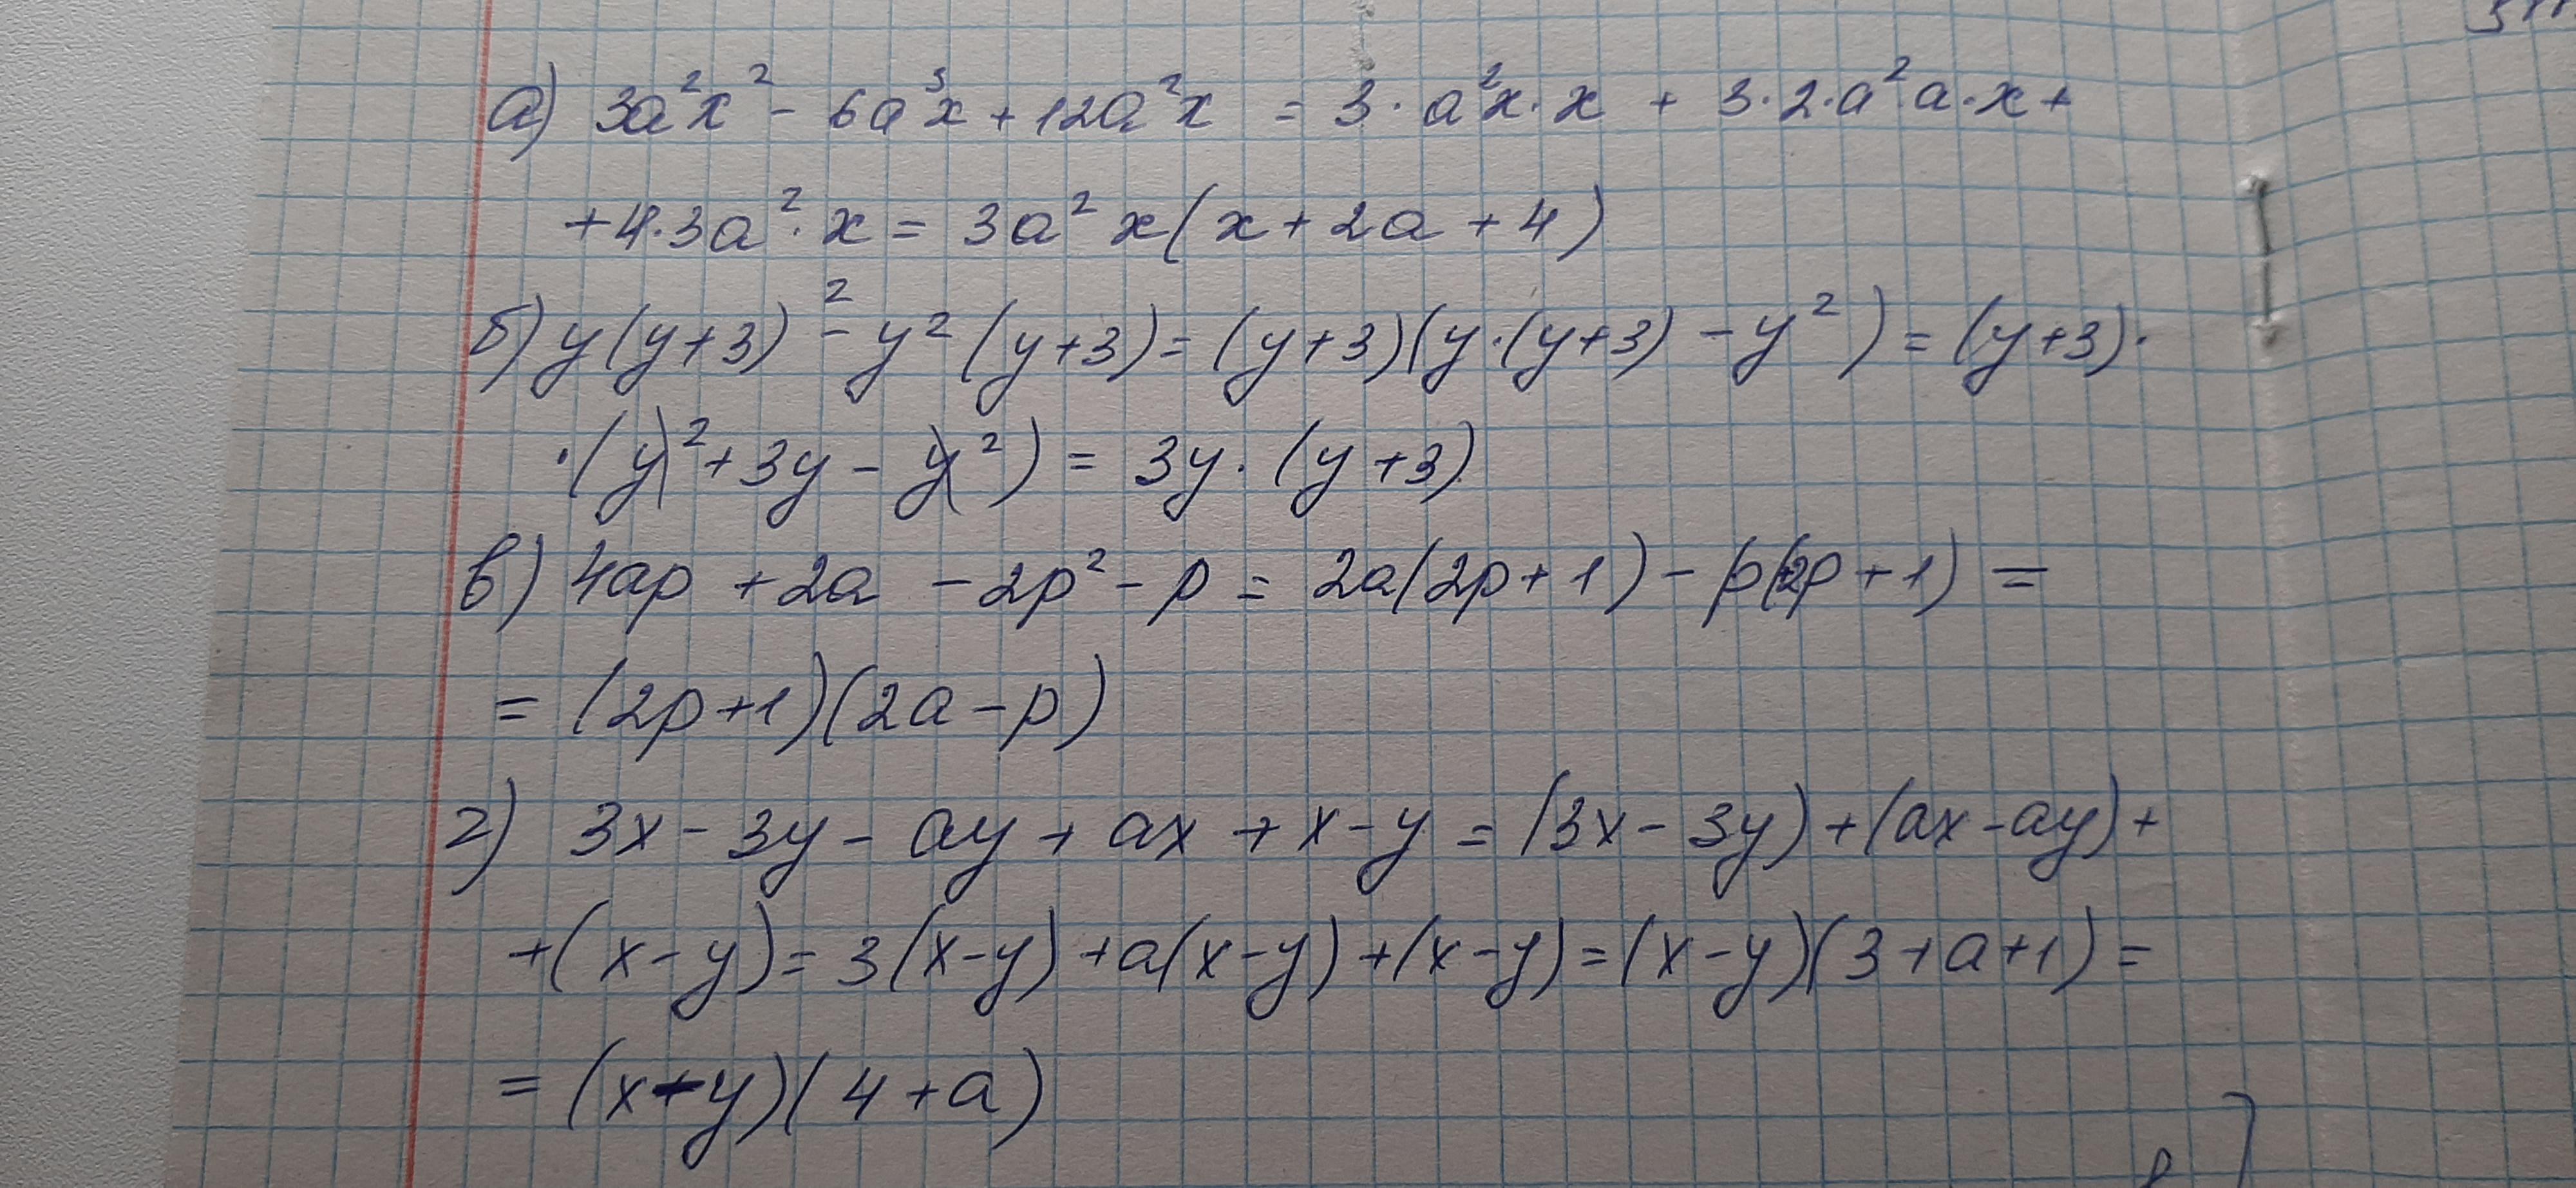 а) 3a²x² - 6a³x + 12a²x = 3·a²x·x + 3·2·a²a·x +
+ 4·3a²·x = 3a²x(x + 2a + 4)
б) y(y+3)² - y²(y+3) = (y+3)(y·(y+3) - y²) = (y+3)·
·(y² + 3y - y²) = 3y·(y+3)
в) 4ap + 2a - 2p² - p = 2a(2p+1) - p(2p+1) =
= (2p+1)(2a-p)
г) 3x - 3y - ay + ax + x - y = (3x - 3y) + (ax - ay) +
+ (x-y) = 3(x-y) + a(x-y) + (x-y) = (x-y)(3+a+1) =
= (x-y)(4+a)